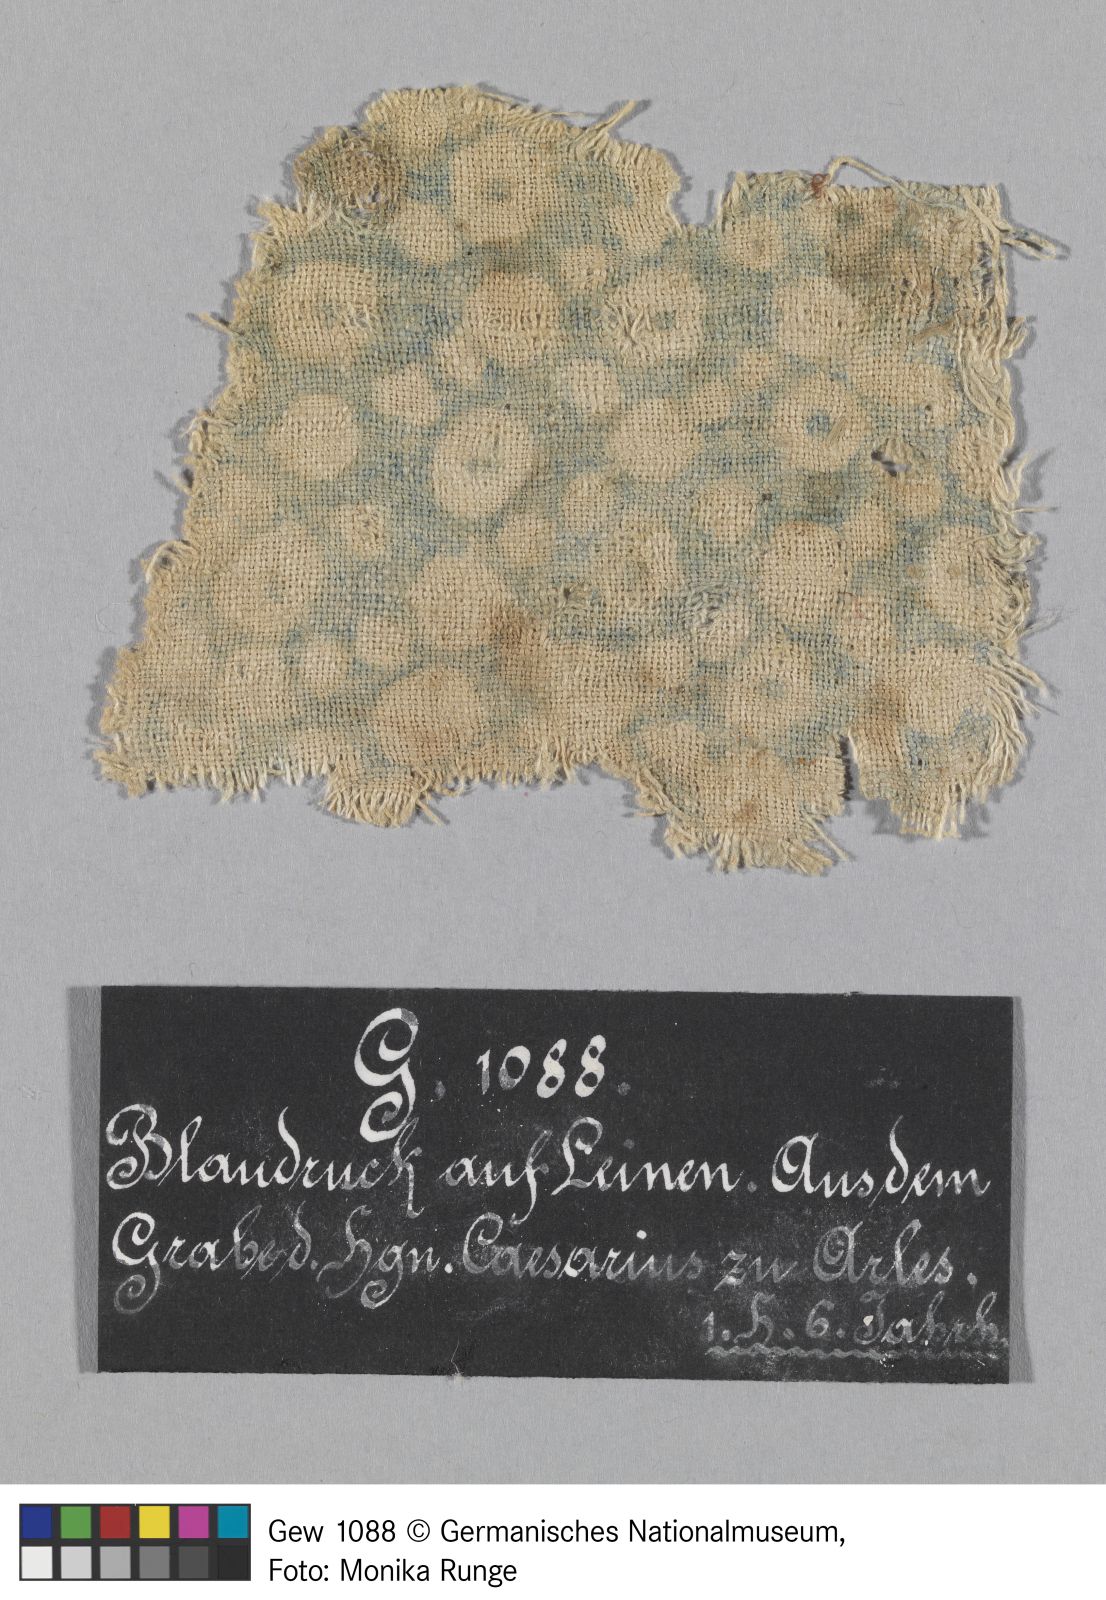 G. 1088.
Blaudruck auf Leinen. Aus dem
Grabe d. hgn. Caesarius zu Arles.
1. H. 6. Jahrh.
Gew 1088 © Germanisches Nationalmuseum,
Foto: Monika Runge